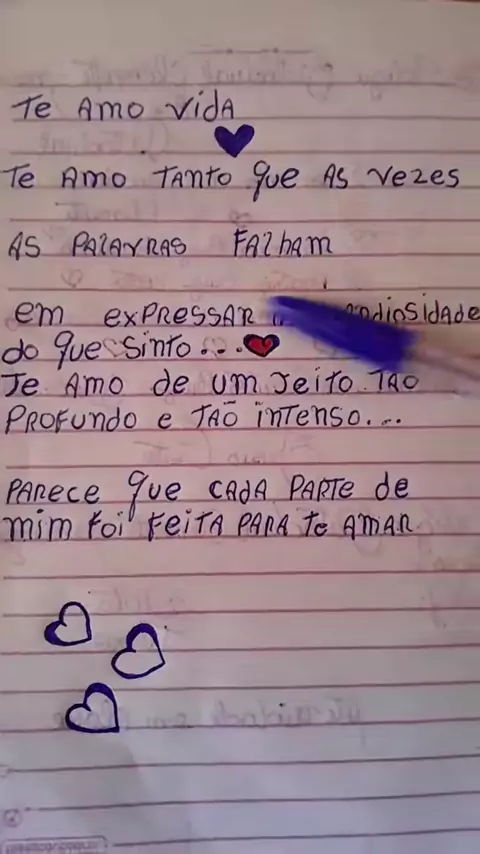 Te AMO VidA
Te AMO TANTO que AS vezes
AS PALAVRAS FALHAM
em exPRESSAR
do que sinto...
Te AMO de um Jeito TÃO
PROFUNDO e TÃO iNTENSO...
PARECE que CADA PARTE de
mim foi FeiTA PARA te AMAR